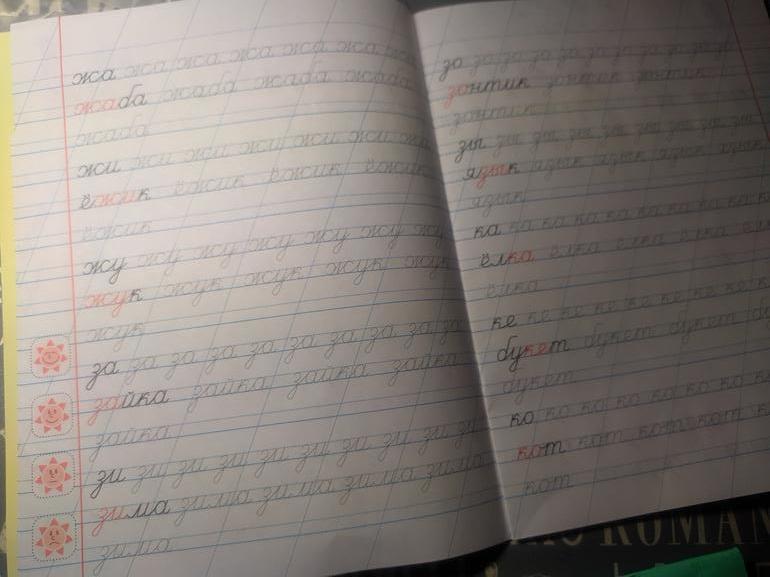 жа жа жа жа жа жа жа
жаба жаба жаба жаба
жаба
жи жи жи жи жи жи жи
ёжик ёжик ёжик ёжик
ёжик
жу жу жу жу жу жу жу
жук жук жук жук жук
жук
за за за за за за за за за за
зайка зайка зайка зайка
зайка
зи зи зи зи зи зи зи зи зи зи
зима зима зима зима зима
зима
зо зо зо зо зо зо зо зо зо зо
зонтик зонтик зонтик
зонтик
зы зы зы зы зы зы зы зы
язык язык язык язык язык
язык
ка ка ка ка ка ка ка ка ка
ёлка ёлка ёлка ёлка
ёлка
ке ке ке ке ке ке ке ке
букет букет букет
букет
ко ко ко ко ко ко ко
кот кот кот кот
кот
ROMAN